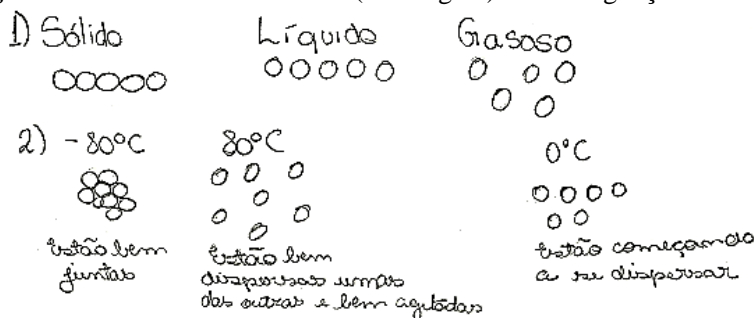 1) Sólido Líquido Gasoso
2) -80°C 80°C 0°C
Estão bem juntas
Estão bem dispersas umas das outras e bem agitadas
Estão começando a se dispersar